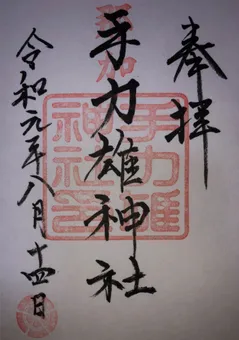 奉拝
手力雄神社
令和元年八月十四日
手力雄
神社之